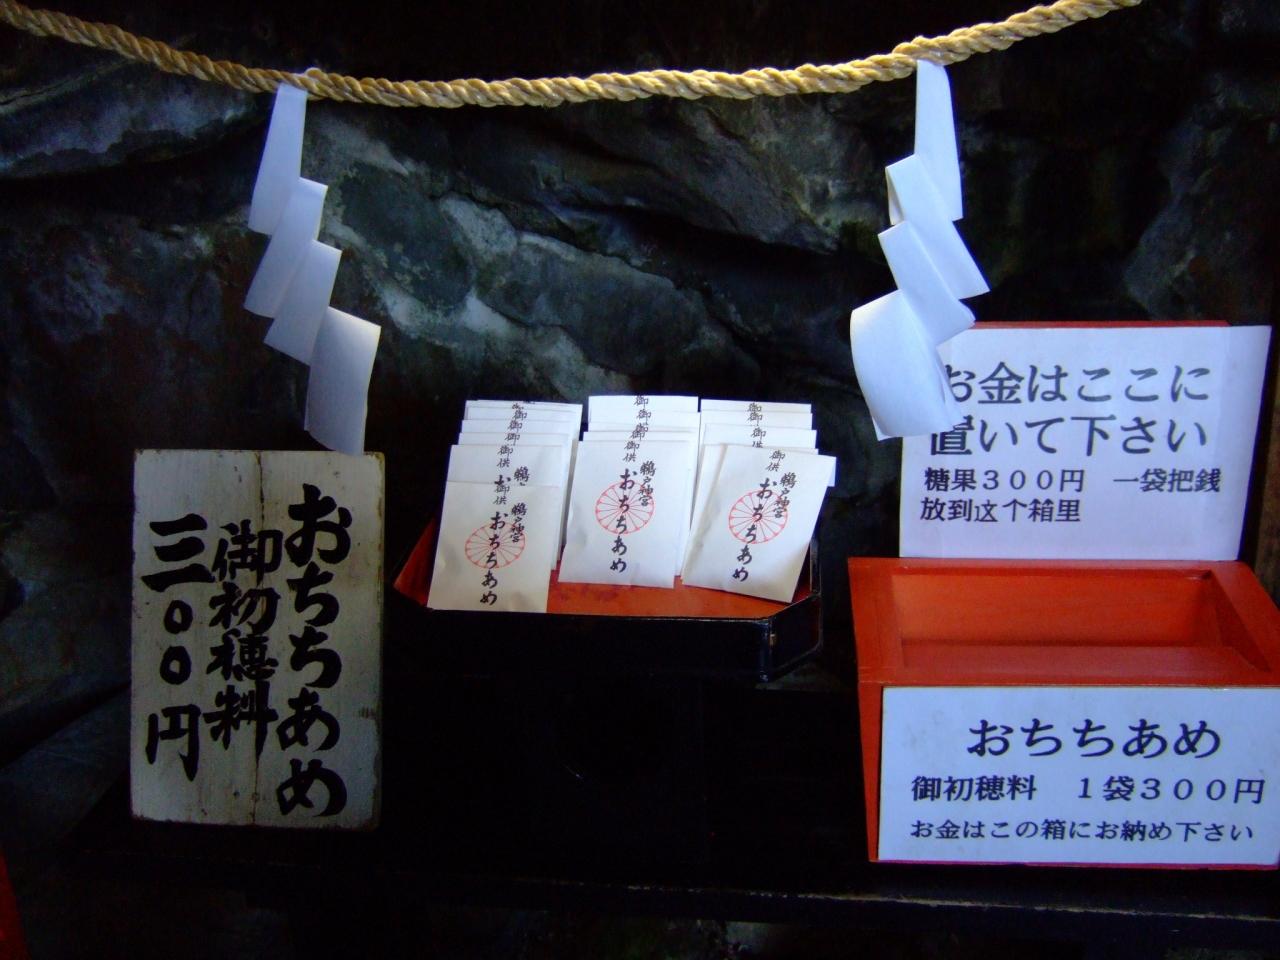 おちちあめ
御初穂料
三〇〇円
御供
鵜戸神宮
おちちあめ
鵜戸神宮
おちちあめ
御供
鵜戸神宮
おちちあめ
お金はここに
置いて下さい
糖果３００円　一袋把銭
放到这个箱里
おちちあめ
御初穂料　１袋３００円
お金はこの箱にお納め下さい